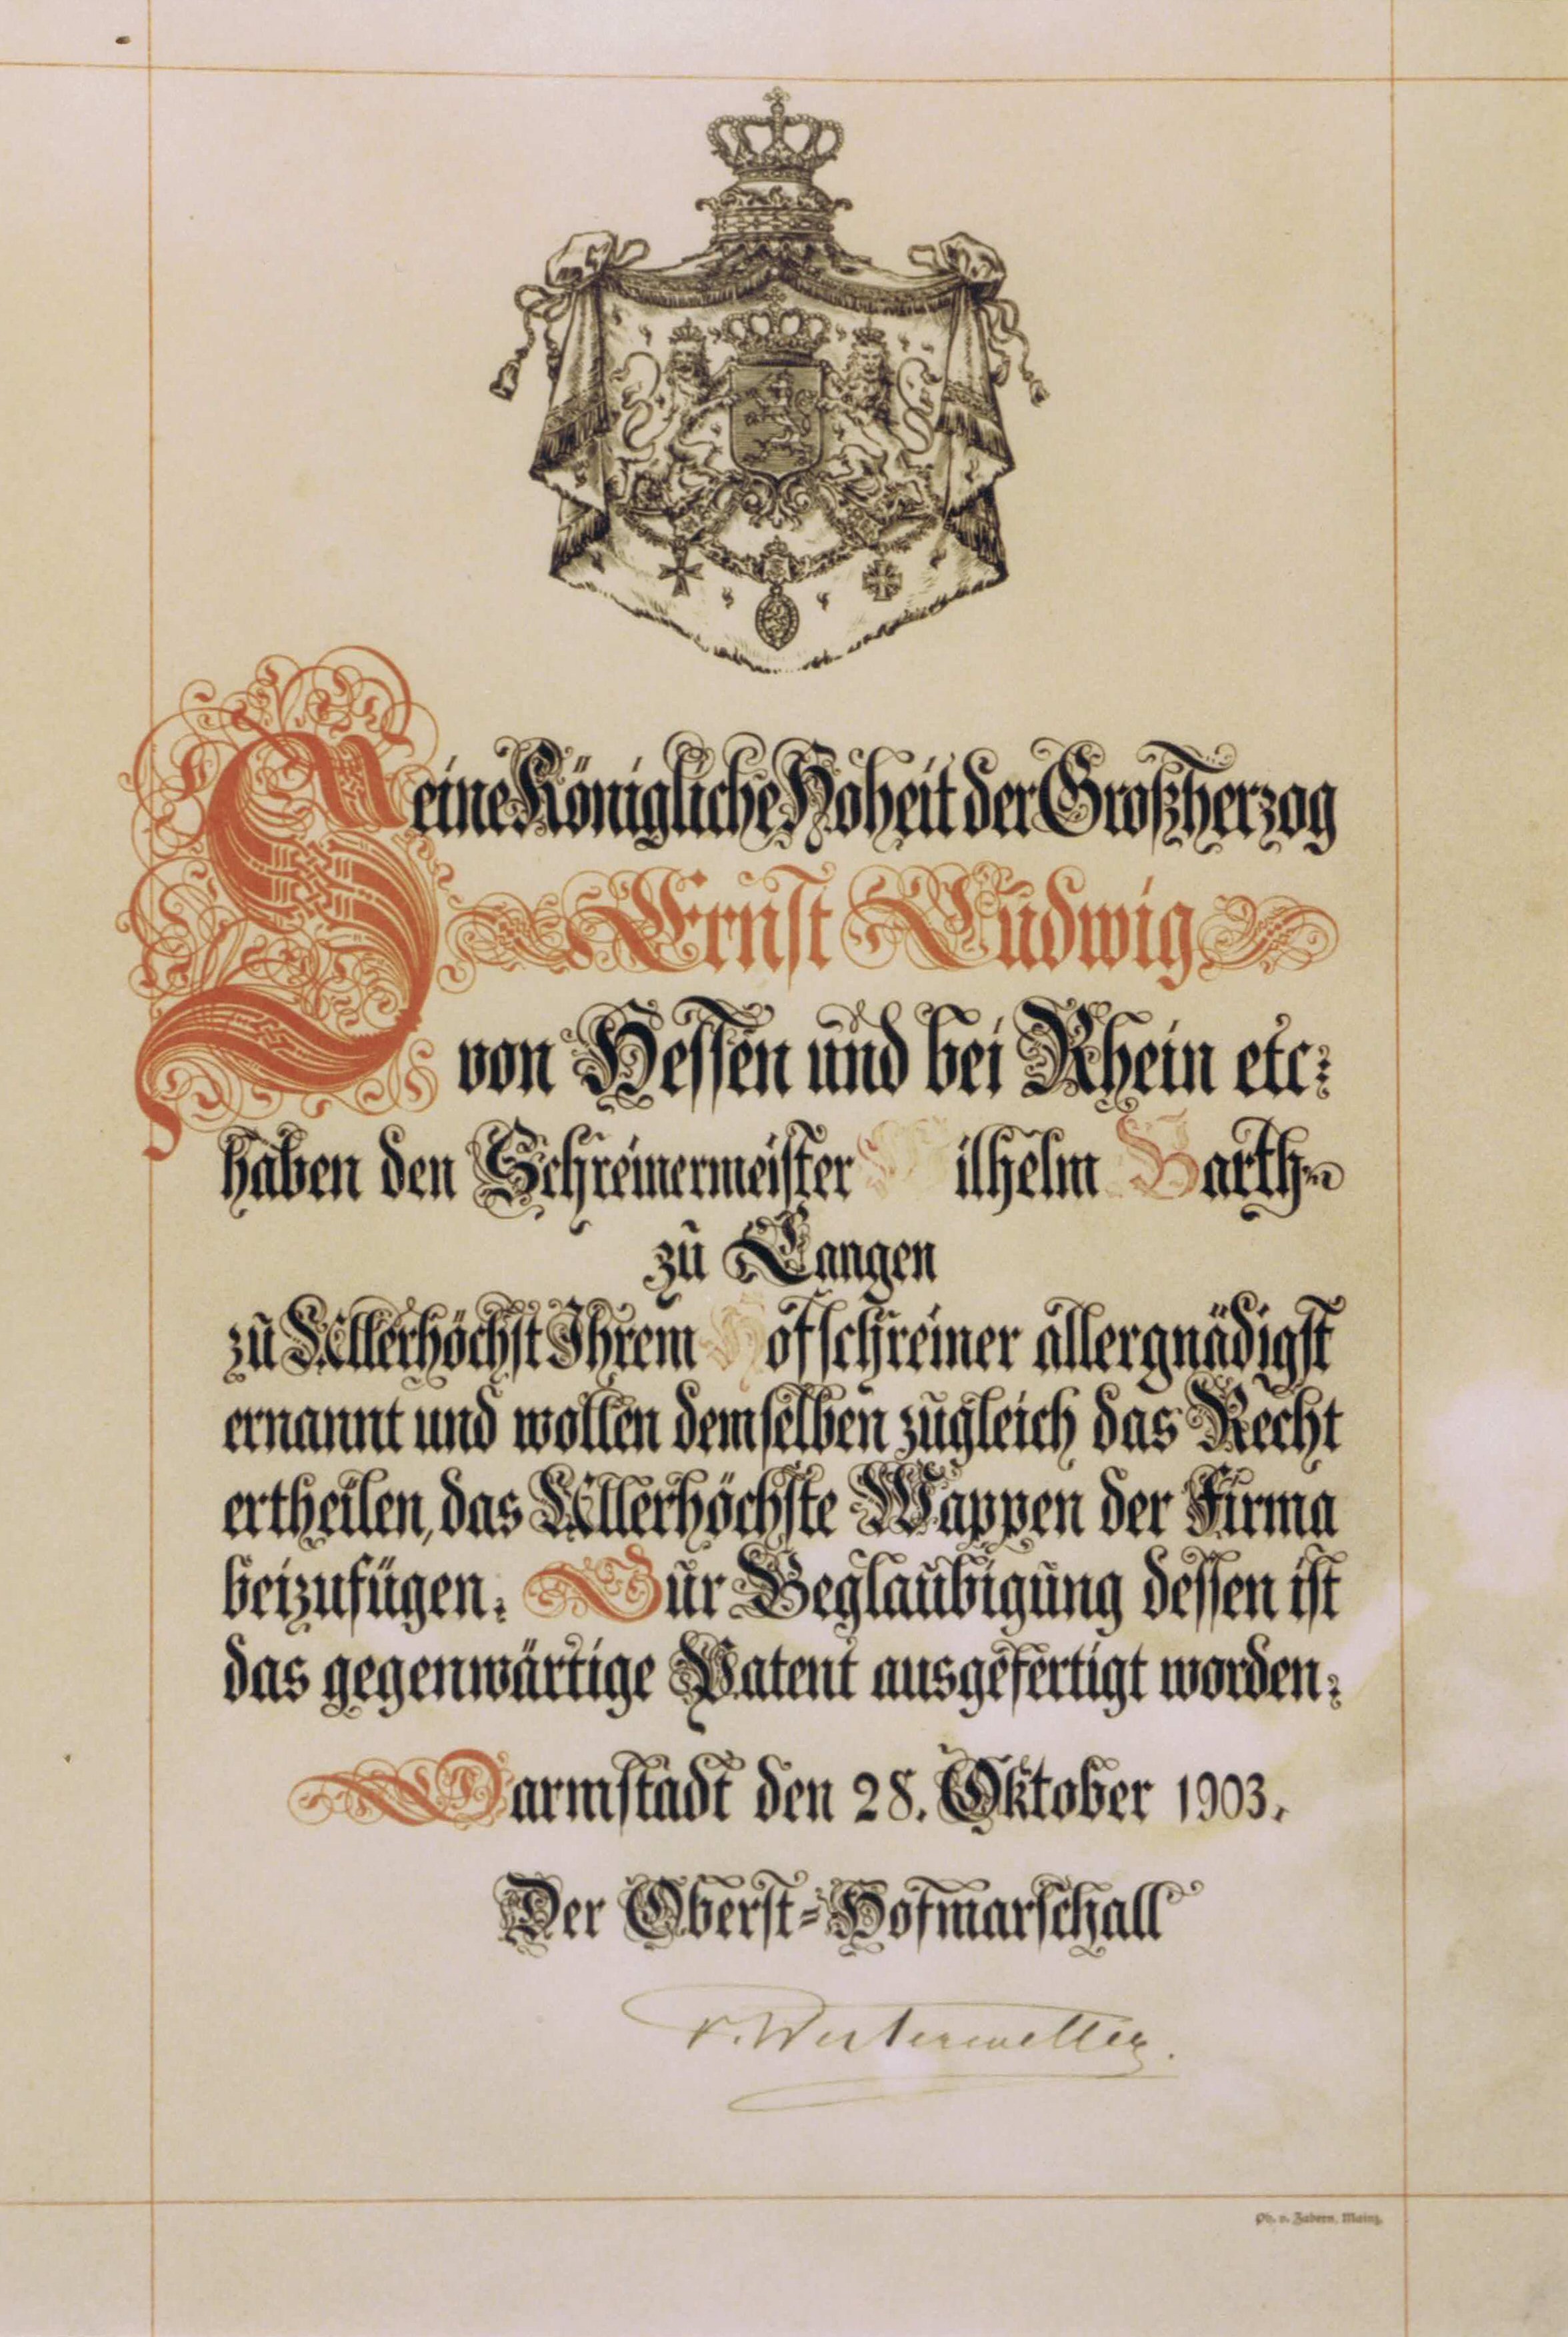 Seine Königliche Hoheit der Großherzog
Ernst Ludwig
von Hessen und bei Rhein etc:
haben den Schreinermeister Wilhelm Barth
zu Langen
zu Allerhöchst Ihrem Hofschreiner allergnädigst
ernannt und wollen demselben zugleich das Recht
ertheilen, das Allerhöchste Wappen der Firma
beizufügen. Zur Beglaubigung dessen ist
das gegenwärtige Patent ausgefertigt worden.
Darmstadt den 28. Oktober 1903.
Der Oberst-Hofmarschall
v. Westerweller.
Ph. v. Zabern, Mainz.